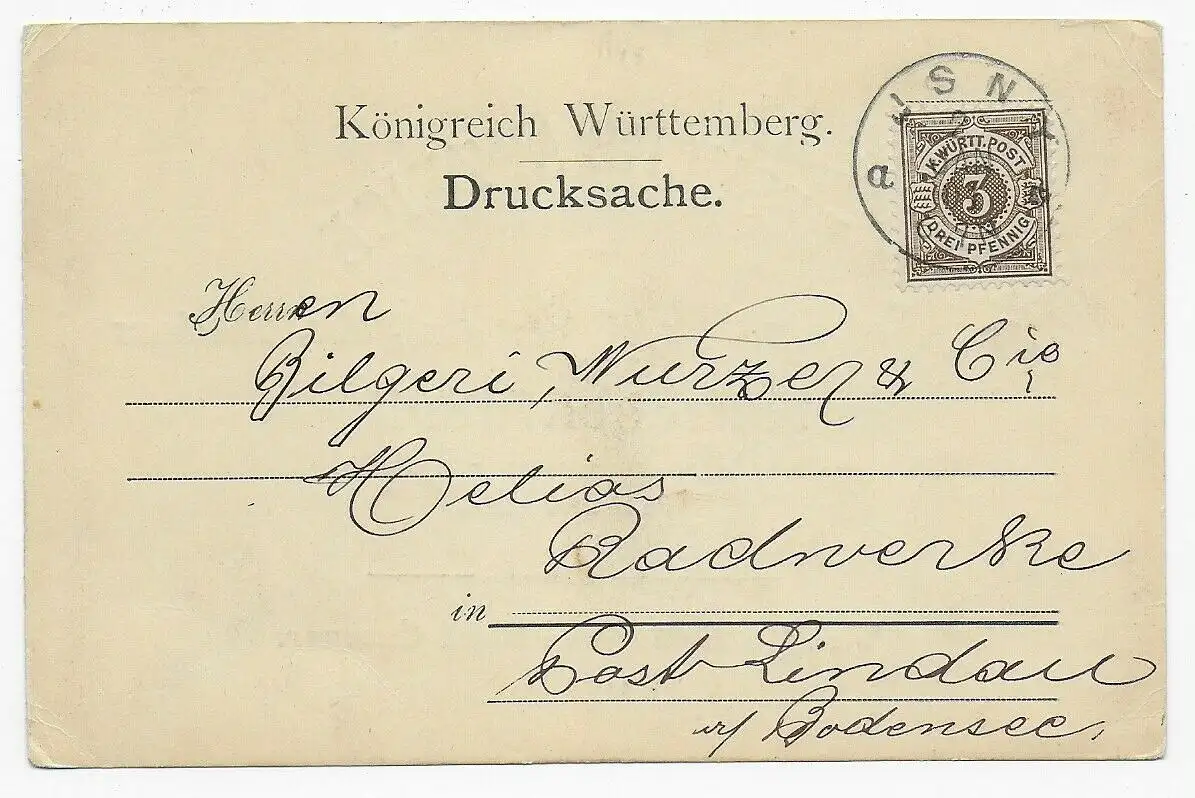 Königreich Württemberg.
Drucksache.
ISNY
a
K. WÜRTT. POST
3
DREI PFENNIG
Herren
Bilgeri, Wurzer & Cie
Helios
Radwerke
in
Post Lindau
Bodensee,